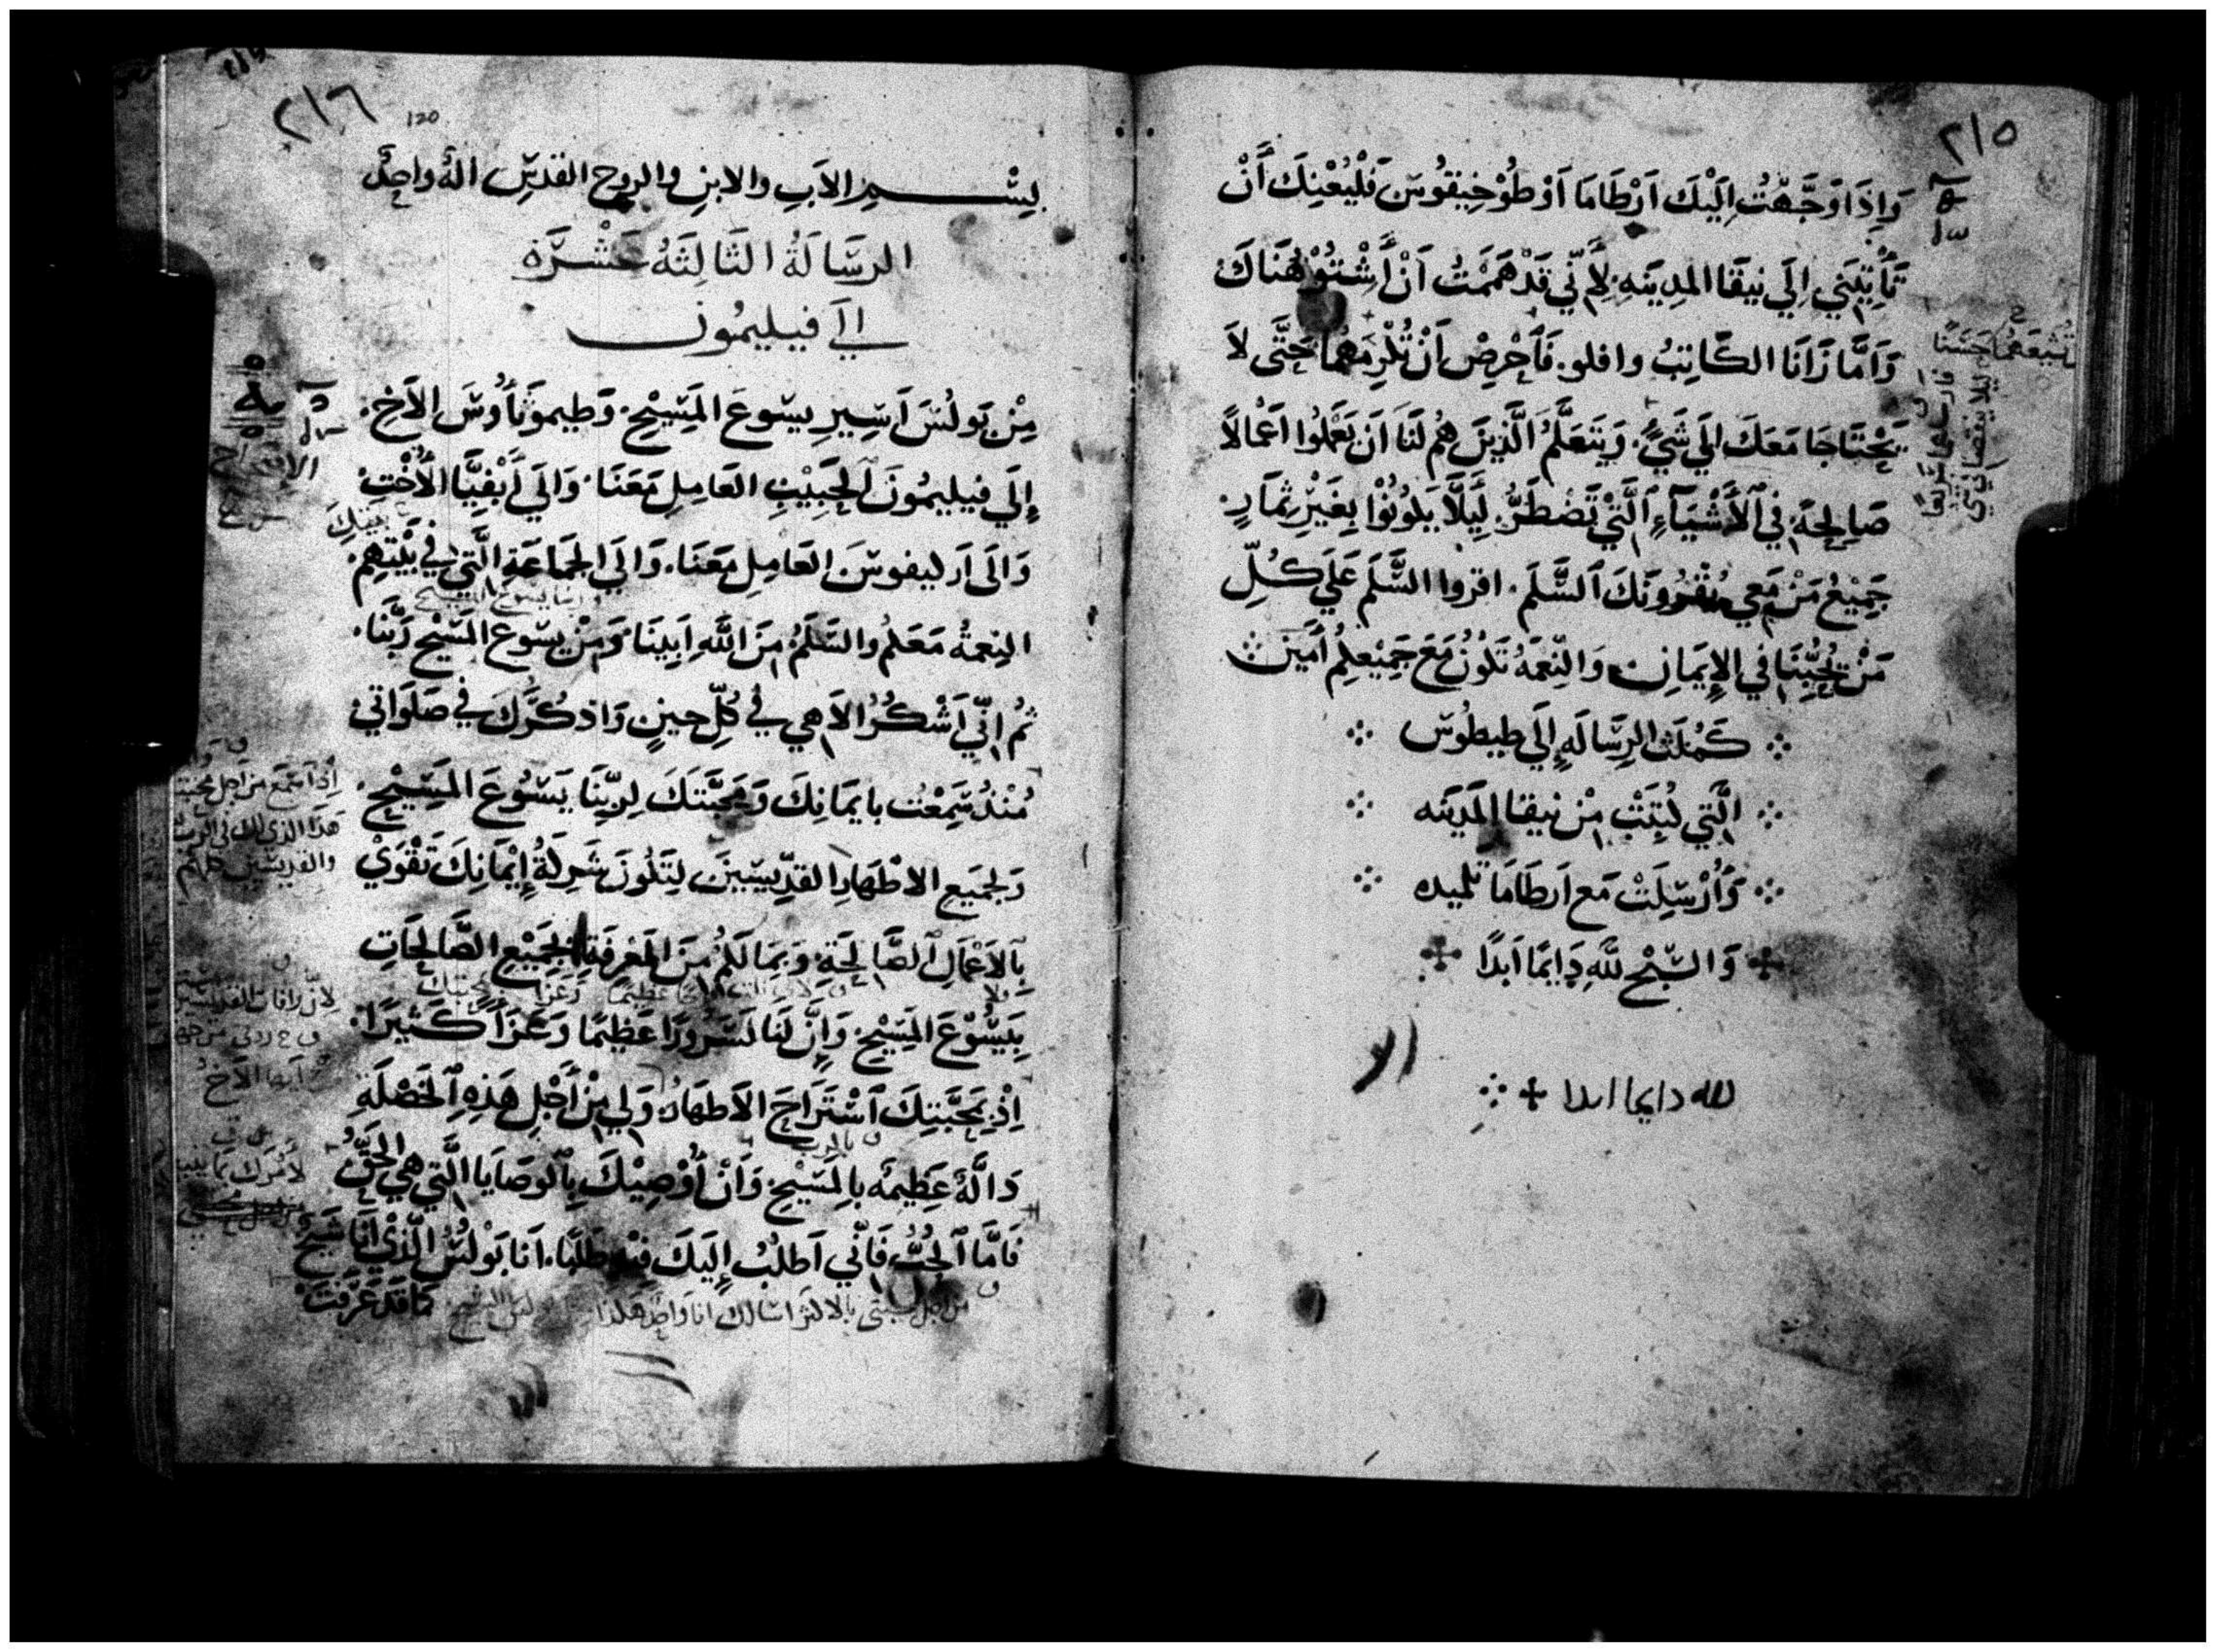 ٢١٥
وَإِذَا وَجَّهْتُ إِلَيْكَ اَرْطَامَا اَوْ طُوْخِيقُوسَ فَلْيُعْنِكَ أَنْ
تَأْتِيَنِي اِلَي نيقَا المدِينَهِ لِأَنِّي قَدْ هَمَمْتُ اَنْ أَشْتُوْ هُنَاكَ
وَاَمَّا زَانَا الكَاتِبُ وافلو. فَاَحْرِصْ اَنْ تُكْرِمَهُمَا حَتَّى لاَ
يَحْتَاجَا مَعَكَ الَي شَيٍ. وَيَتَعَلَّمُ الَّذِينَ هُم لَنَا اَن يَعْمَلُوا اَعْمَالاً
صَالِحَة فِي اَلأَشْيَآءِ اَلَّتِيْ تَضْطَرُّ. لِيَلَّا يَكُونُوْا بِغَيْرِ ثِمَارٍ.
جَمِيْعُ مَنْ مَعِي يُقْرُونَكَ اَلسَّلَمَ. اقروا السَّلَمَ عَلَي كُلِّ
مَنْ يُحِبُّنَا فِي الإِيمَانِ وَالنِّعمَهُ تَكُوْنُ مَعَ جَمِيْعِكُم أَمِين
كَمُلَتْ الرِسَالَه إِلَي طيطُوس
الَّتِي كُتِبَتْ مِنْ نيقا المَدينَه
وَأُرْسِلَتْ مَع اَرطَامَا تلميده
وَالسُّبْح لِلَّهِ دَايمًا اَبَدًا
لله دايما ابدا
تُشَيّعَهُمَا حَسَنًا
٢١٦
120
بِسْمِ الاَبِ والابنِ والروحِ القدسِ الهُ واحِدٌ
الرسَالَةُ الثَالِثَهُ عَشْرَة
الَي فيليمُون
مِنْ بَولُسَ اَسِيرِ يسوعَ المَسِيْحِ. وَطيموثَاُوسَ الاَخِ.
إِلَي فيليمُونَ اَلحَبِيْبِ العَامِلِ مَعَنَا. وَالَي أَبْفِيَّا الأُخْتِ
وَالَى اَرليفوسَ العَامِلِ مَعَنَا. وَالَي الجَمَاعَةِ الَّتِي فِي بَيْتِهِم.
النِعمةُ مَعَكُم والسَلَمُ مِنَ اللَّهِ اَبِينَا وَمِنْ يسوع المَسِيْح رَبَّنَا.
ثُم اِنِّي اَشْكُرُ الاَهي فِي كُلِّ حِينٍ وَاذكُرَكَ فِي صَلَوَاتي
مُنْدُ سَمِعْتُ بايمَانِكَ وَمَحَبَّتَكَ لِرَبِّنَا يَسُوْعَ المَسِيْحِ.
وَلِجَمِيع الاطْهَارِ القدِّيسينَ لِتَكُونَ شَرِكَةُ إِيْمَانِكَ تَقْوَيْ
بِالاَعْمَالِ اَلصَّالِحَةِ. وَبِمَا لَكُمْ مِنَ المَعْرِفَةِ لِجَمِيْعِ الصَّالِحَاتِ
بِيَسُوْعَ المَسِيْحِ. وَإِنَّ لَنَا لَسُرُورًا عَظِيمًا وَعَزَاً كَثِيرًا.
اِذْ بِمَحَبَّتِكَ اَسْتَرَاحَ الاَطهَارُ. وَلِي مِنْ أَجْلِ هَذِهِ اَلخَصْلَةِ
دَالَّةُ عَظِيمَه بِالمَسِيْحِ. وَاَنْ أُوْصِيْكَ بِالوصَايَا الَّتِي هي الحَقُّ
فَامَّا اَلحُبُّ فَاِنِّي اَطلُبُ إِلَيكَ فِيْهِ طَلَبًا. اَنَا بَوْلُسُ الَّذِيْ اَنَا شَيْخ
كَمَا قَدْ عَرَفْتَ
إذ اَسمَع من اَجل محبتك
هَذا الذي لك في الرب
والقديسين كلهم
اَيها الاَخُ